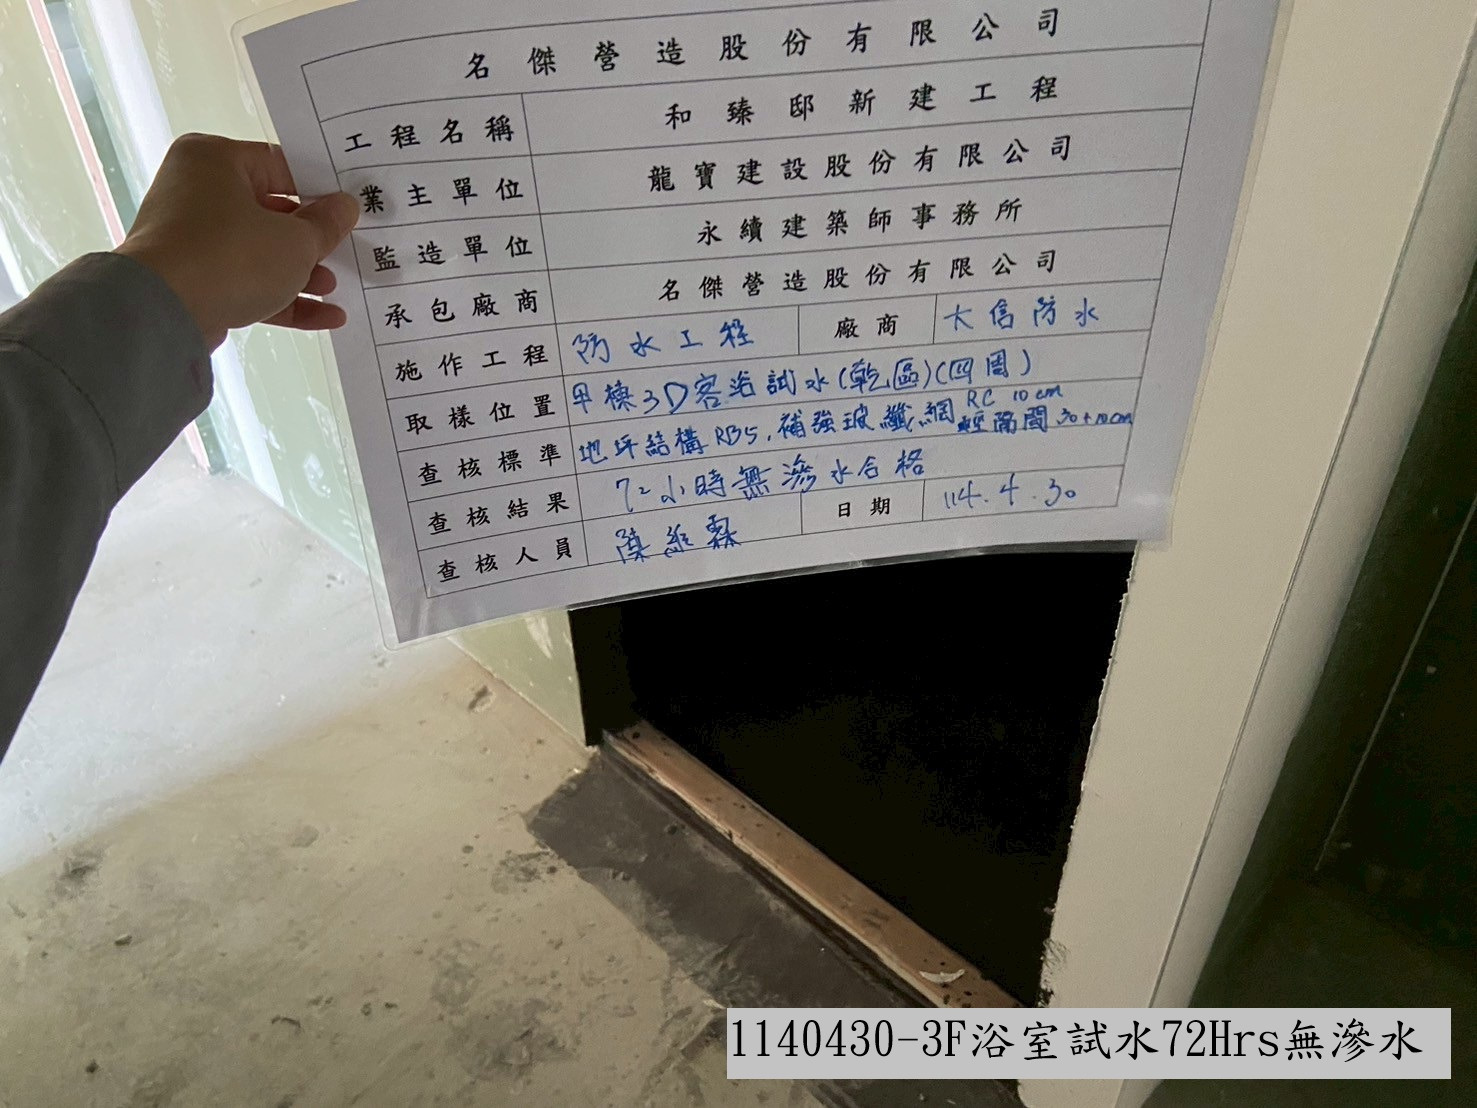 名傑營造股份有限公司
工程名稱 和臻邸新建工程
業主單位 龍寶建設股份有限公司
監造單位 永續建築師事務所
承包廠商 名傑營造股份有限公司
施作工程 防水工程 廠商 大信防水
取樣位置 甲棟3D客浴試水(乾區)(四周)
查核標準 地坪結構RBS.補強玻纖網 RC 10cm
輕隔間 30+10cm
查核結果 72小時無滲水合格
查核人員 陳維霖 日期 114.4.30
1140430-3F浴室試水72Hrs無滲水